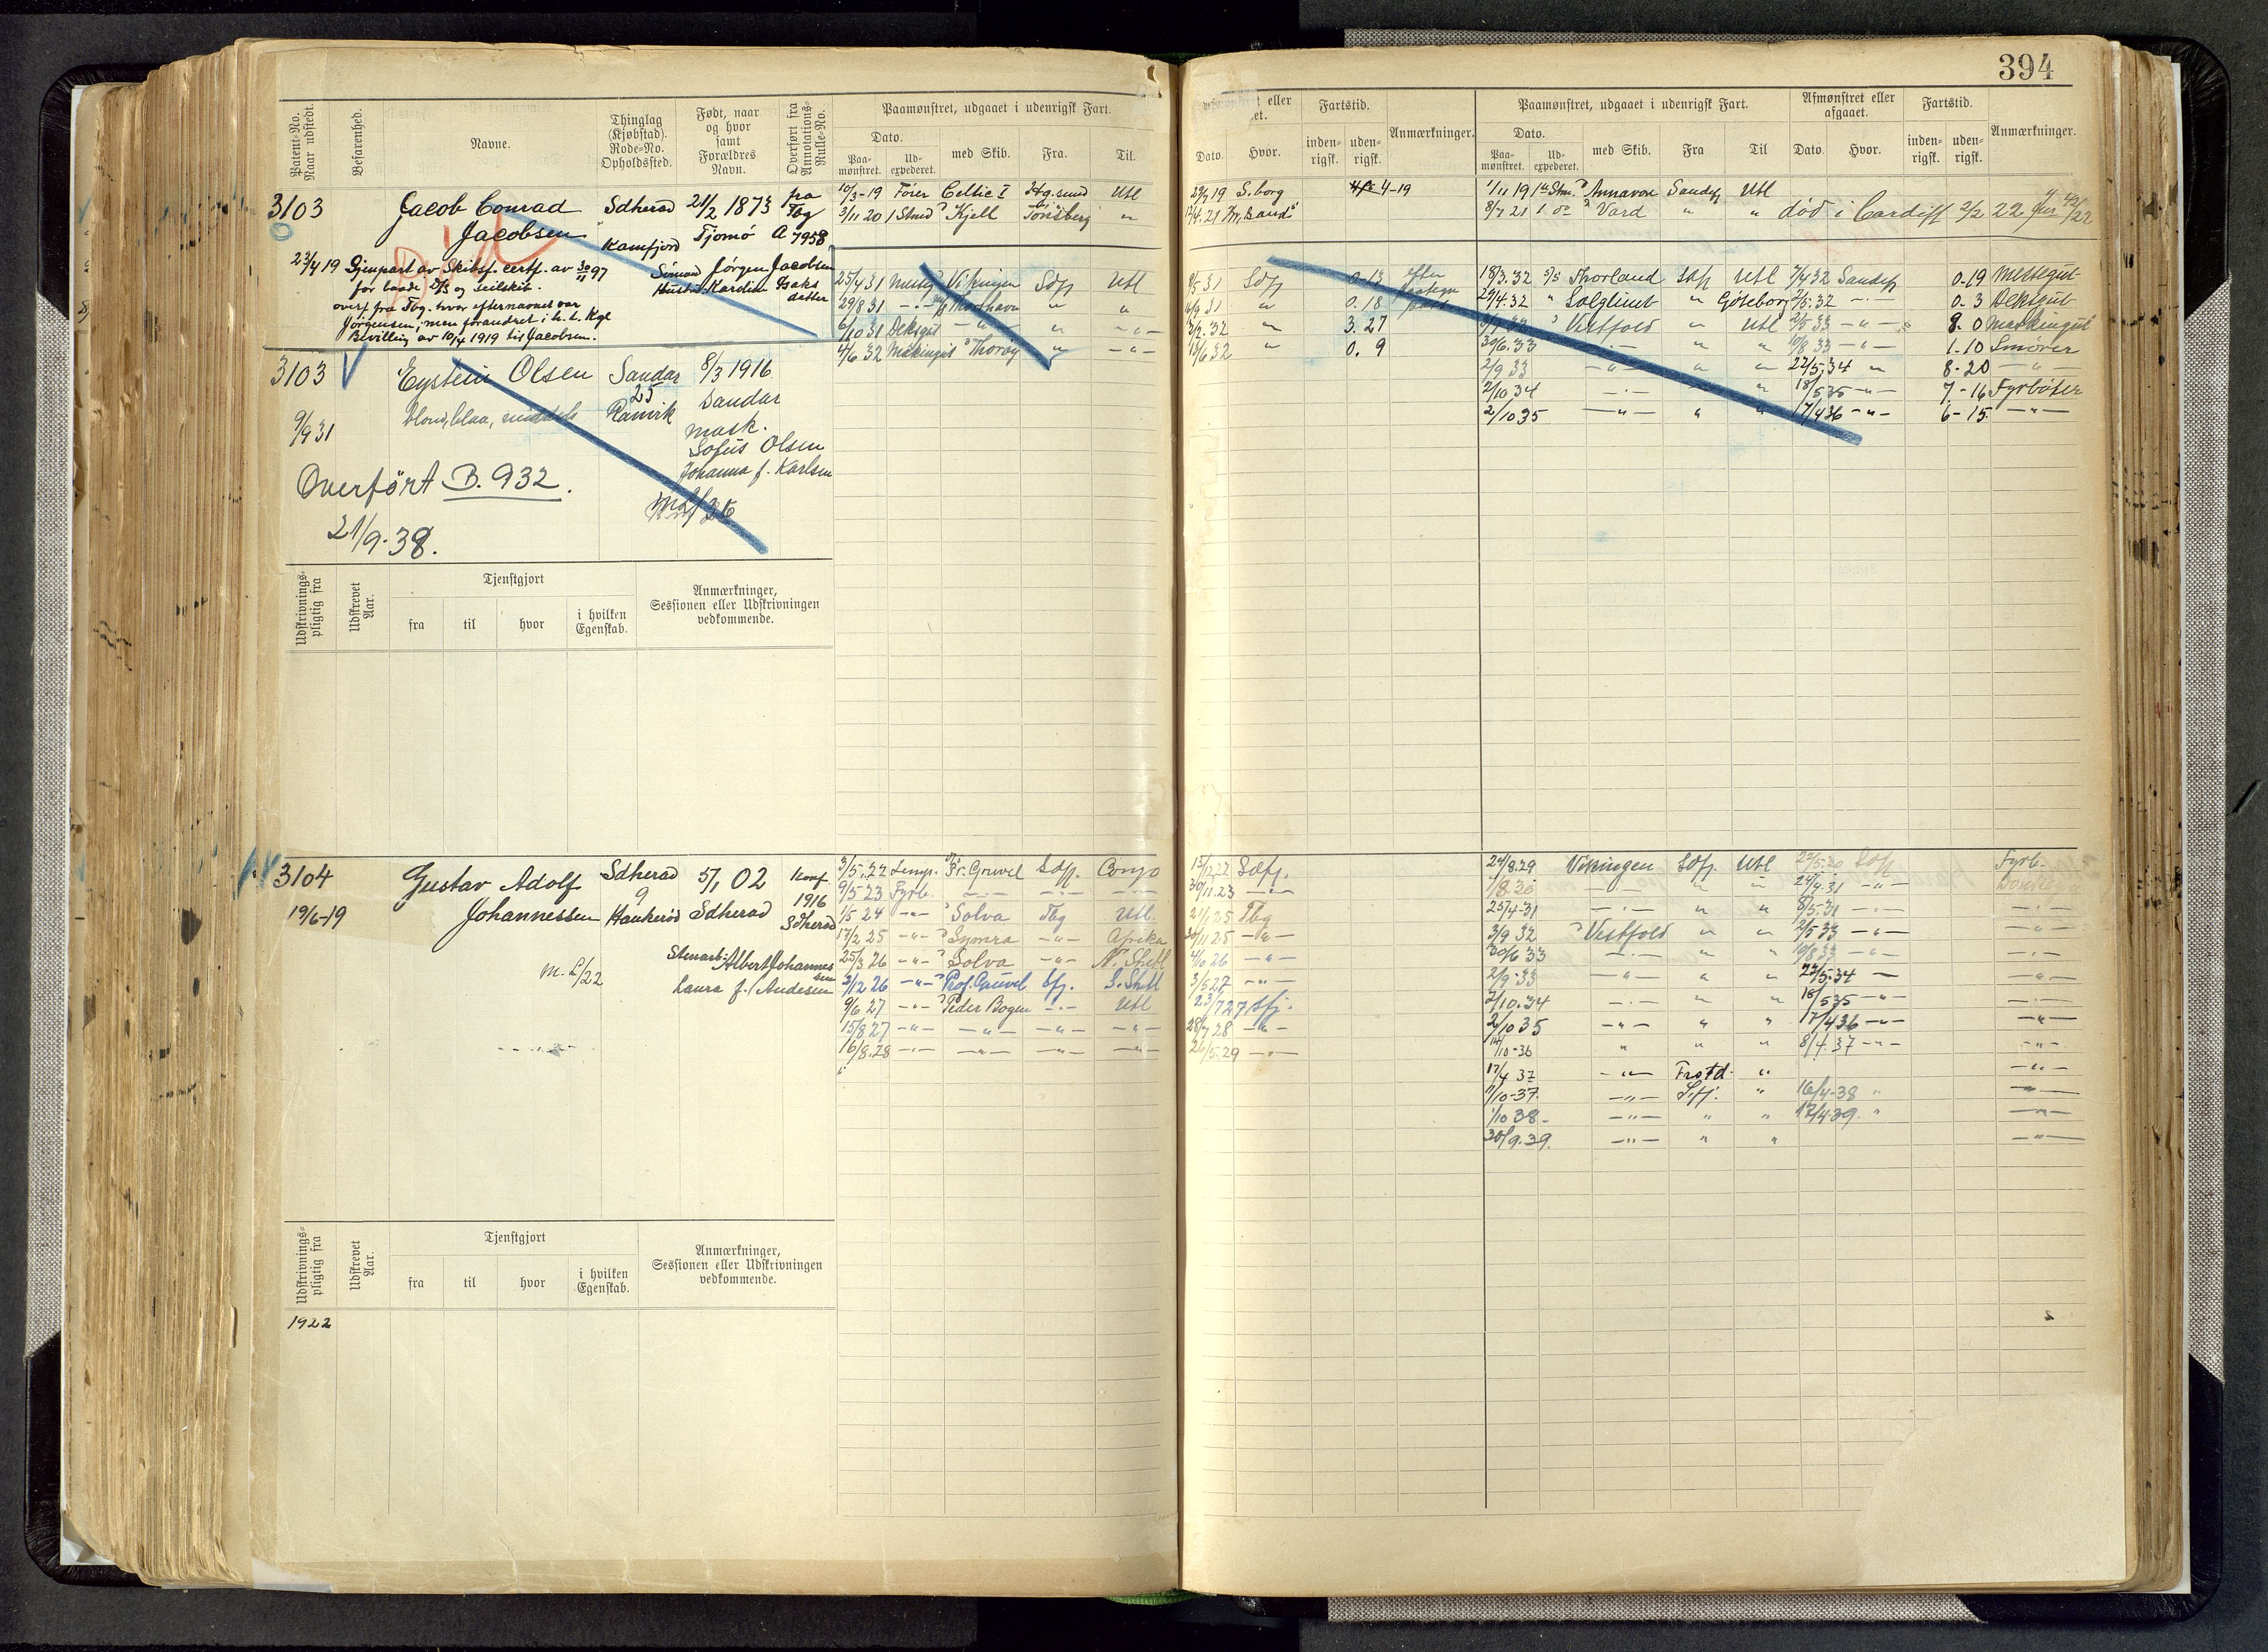 394
Patent-No. Naar udstedt.
Befarenhed.
Navne.
Thinglag (Kjøbstad). Rode-No. Opholdssted.
Født, naar og hvor samt Forældres Navn.
Overført fra Annotations-Rulle-No.
Paamønstret, udgaaet i udenrigsk Fart.
Dato.
Paa-mønstret.
Ud-expederet.
med Skib.
Fra.
Til.
eller
Dato.
Hvor.
Fartstid.
inden-rigsk.
uden-rigsk.
Anmærkninger.
Paamønstret, udgaaet i udenrigsk Fart.
Dato.
Paa-mønstret.
Ud-expederet.
med Skib.
Fra
Til
Afmønstret eller afgaaet.
Dato.
Hvor.
Fartstid.
inden-rigsk.
uden-rigsk.
Anmærkninger.
3103 Jacob Conrad Sdherad 21/2 1873 fra
Jacobsen Kamfjord Tjømø Tbg A 7958
23/4 19 Gjenpart av Skibsf. certf. av 30/11 97
for baade D/S og seilskib.
overf. fra Tbg. hvor efternavnet var
Jørgensen, men forandret i h. t. Kgl
Bevilling av 10/4 1919 til Jacobsen.
Simon Jørgen Jacobsen
Hustru Kardine Isaksdatter
10/3-19 Fører Celtic I Utl
3/11 20 1 Stmd Kjell Tønsberg "
29/7 19 S.borg 4-19
1/11 19 Annavore Sandefj Utl
8/7 21 Vard " " død i Cardiff 2/2 22
3103 Eystein Olsen Sandar 8/3 1916
blond, blaa, middels 25 Ranvik Sandar
9/9 31
mask.
Sofus Olsen
Johanna f. Karlsen
Overført B. 932.
21/9-38.
25/4 31 Vikingen Sdfj Utl
29/8 31 Thorshavn " "
6/10 31 Deksgut - " - " - " -
4/6 32 Maskingut Thorøy " - " -
5 31 Sdfj 0.13
9 31 " 0.18
32 " 3.27
6 32 " 0.9
18/3.32 Thorland Sdfj Utl 7/4 32 Sandefj 0-19 Messegut
29/4.32 " Solglimt " Göteborg 32 - " - 0-3 Deksgut
Vestfold " Utl 2/5 33 - " - 8-0 Maskingut
30/6.33 - " - " " 10/8 33 - " - 1-10 Smører
2/9 33 - " - " " 22/5.34 " 8-20 - " -
2/10 34 - " - " 18/5 35 - " - 7-16 Fyrbøter
2/10 35 - " - " " 17/4 36 - " - 6-15 - " -
Udskrivnings-pligtig fra
Udskrevet Aar.
Tjenstgjort
fra
til
hvor
i hvilken Egenskab.
Anmærkninger, Sessionen eller Udskrivningen vedkommende.
3104 Gustav Adolf Sdherad 5/1 02 Konf.
19/6-19 Johannessen 9 Haukerød Sdherad 1916 Sdherad
Stenarb. Albert Johannessen
Laura f. Andesen
M. L/22
3/5.22 Lemp. Pr. Gruvel Sdfj. Congo
9/5 23 Fyrb. - " - - " - - " -
1/5 24 - " - Solva Tbg Utl.
17/2 25 - " - - " - Afrika
25/3 26 - " - Solva - " - S. Shetl
3/12 26 - " - Prof. Gruvel Sfj. S. Shetl
9/6 27 - " - Peder Bogen - " - Utl
15/8 27 - " - - " - - " - - " -
16/8.28 - " - - " - - " - - " -
15/12 22 Sdfj.
30/11.23 - " -
2/1 25 Tbg
30/11 25 - " -
4/10 26 - " -
3/5 27 - " -
23/7 27 Sfj.
28/7 28 - " -
26/5.29 - " -
24/8.29 Vikingen Sdfj. Utl Sdfj Fyrb.
1/8.30 - " - " " 24/4.31 - " -
25/4-31 - " - " " 8/5.31 - " -
3/9 32 Vestfold " " 2/5 33 - " - - " -
30/6 33 - " - " " 10/8 33 - " - - " -
2/9-33 - " - " " 22/5.34 - - " -
2/10.34 - " - " " 18/5 35 - " - - " -
2/10 35 - " - " " 17/4 36 - " - - " -
14/10-36 " " " 8/4.37 - " - - " -
17/4 37 - " - Frstd. " - " -
11/10-37. - " - Sfj. " 16/4-38 " - " -
1/10 38 - - " - " " 12/4 39. " - " -
30/9.39. - " - " " - " -
Udskrivnings-pligtig fra
Udskrevet Aar.
Tjenstgjort
fra
til
hvor
i hvilken Egenskab.
Anmærkninger, Sessionen eller Udskrivningen vedkommende.
1922